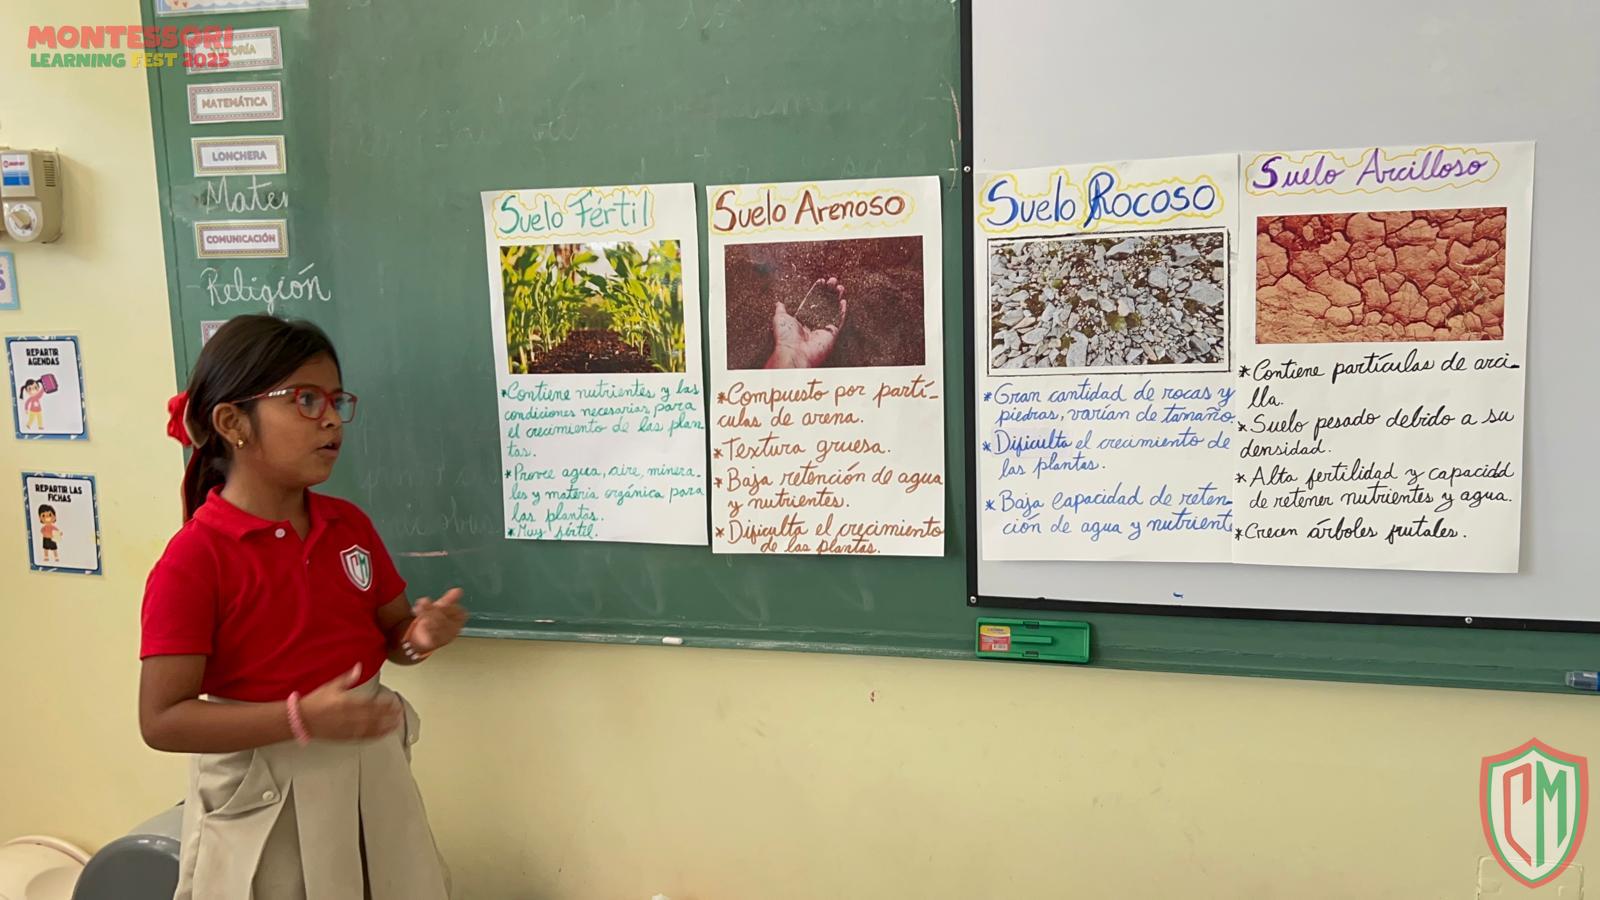 MONTESSORI
LEARNING FEST 2025
MATEMÁTICA
LONCHERA
Mate
COMUNICACIÓN
Religión
REPARTIR
AGENDAS
REPARTIR LAS
FICHAS
Suelo Fértil
*Contiene nutrientes y las
condiciones necesarias para
el crecimiento de las plan
tas.
*Provee agua, aire, minera-
les y materia orgánica para
las plantas.
*Muy fértil.
Suelo Arenoso
*Compuesto por partí-
culas de arena.
*Textura gruesa.
*Baja retención de agua
y nutrientes.
*Dificulta el crecimiento
de las plantas.
Suelo Rocoso
*Gran cantidad de rocas y
piedras, varían de tamaño.
*Dificulta el crecimiento de
las plantas.
*Baja capacidad de reten-
ción de agua y nutriente
Suelo Arcilloso
*Contiene partículas de arci-
lla.
*Suelo pesado debido a su
densidad.
*Alta fertilidad y capacidad
de retener nutrientes y agua.
*Crecen árboles frutales.
CM
CM